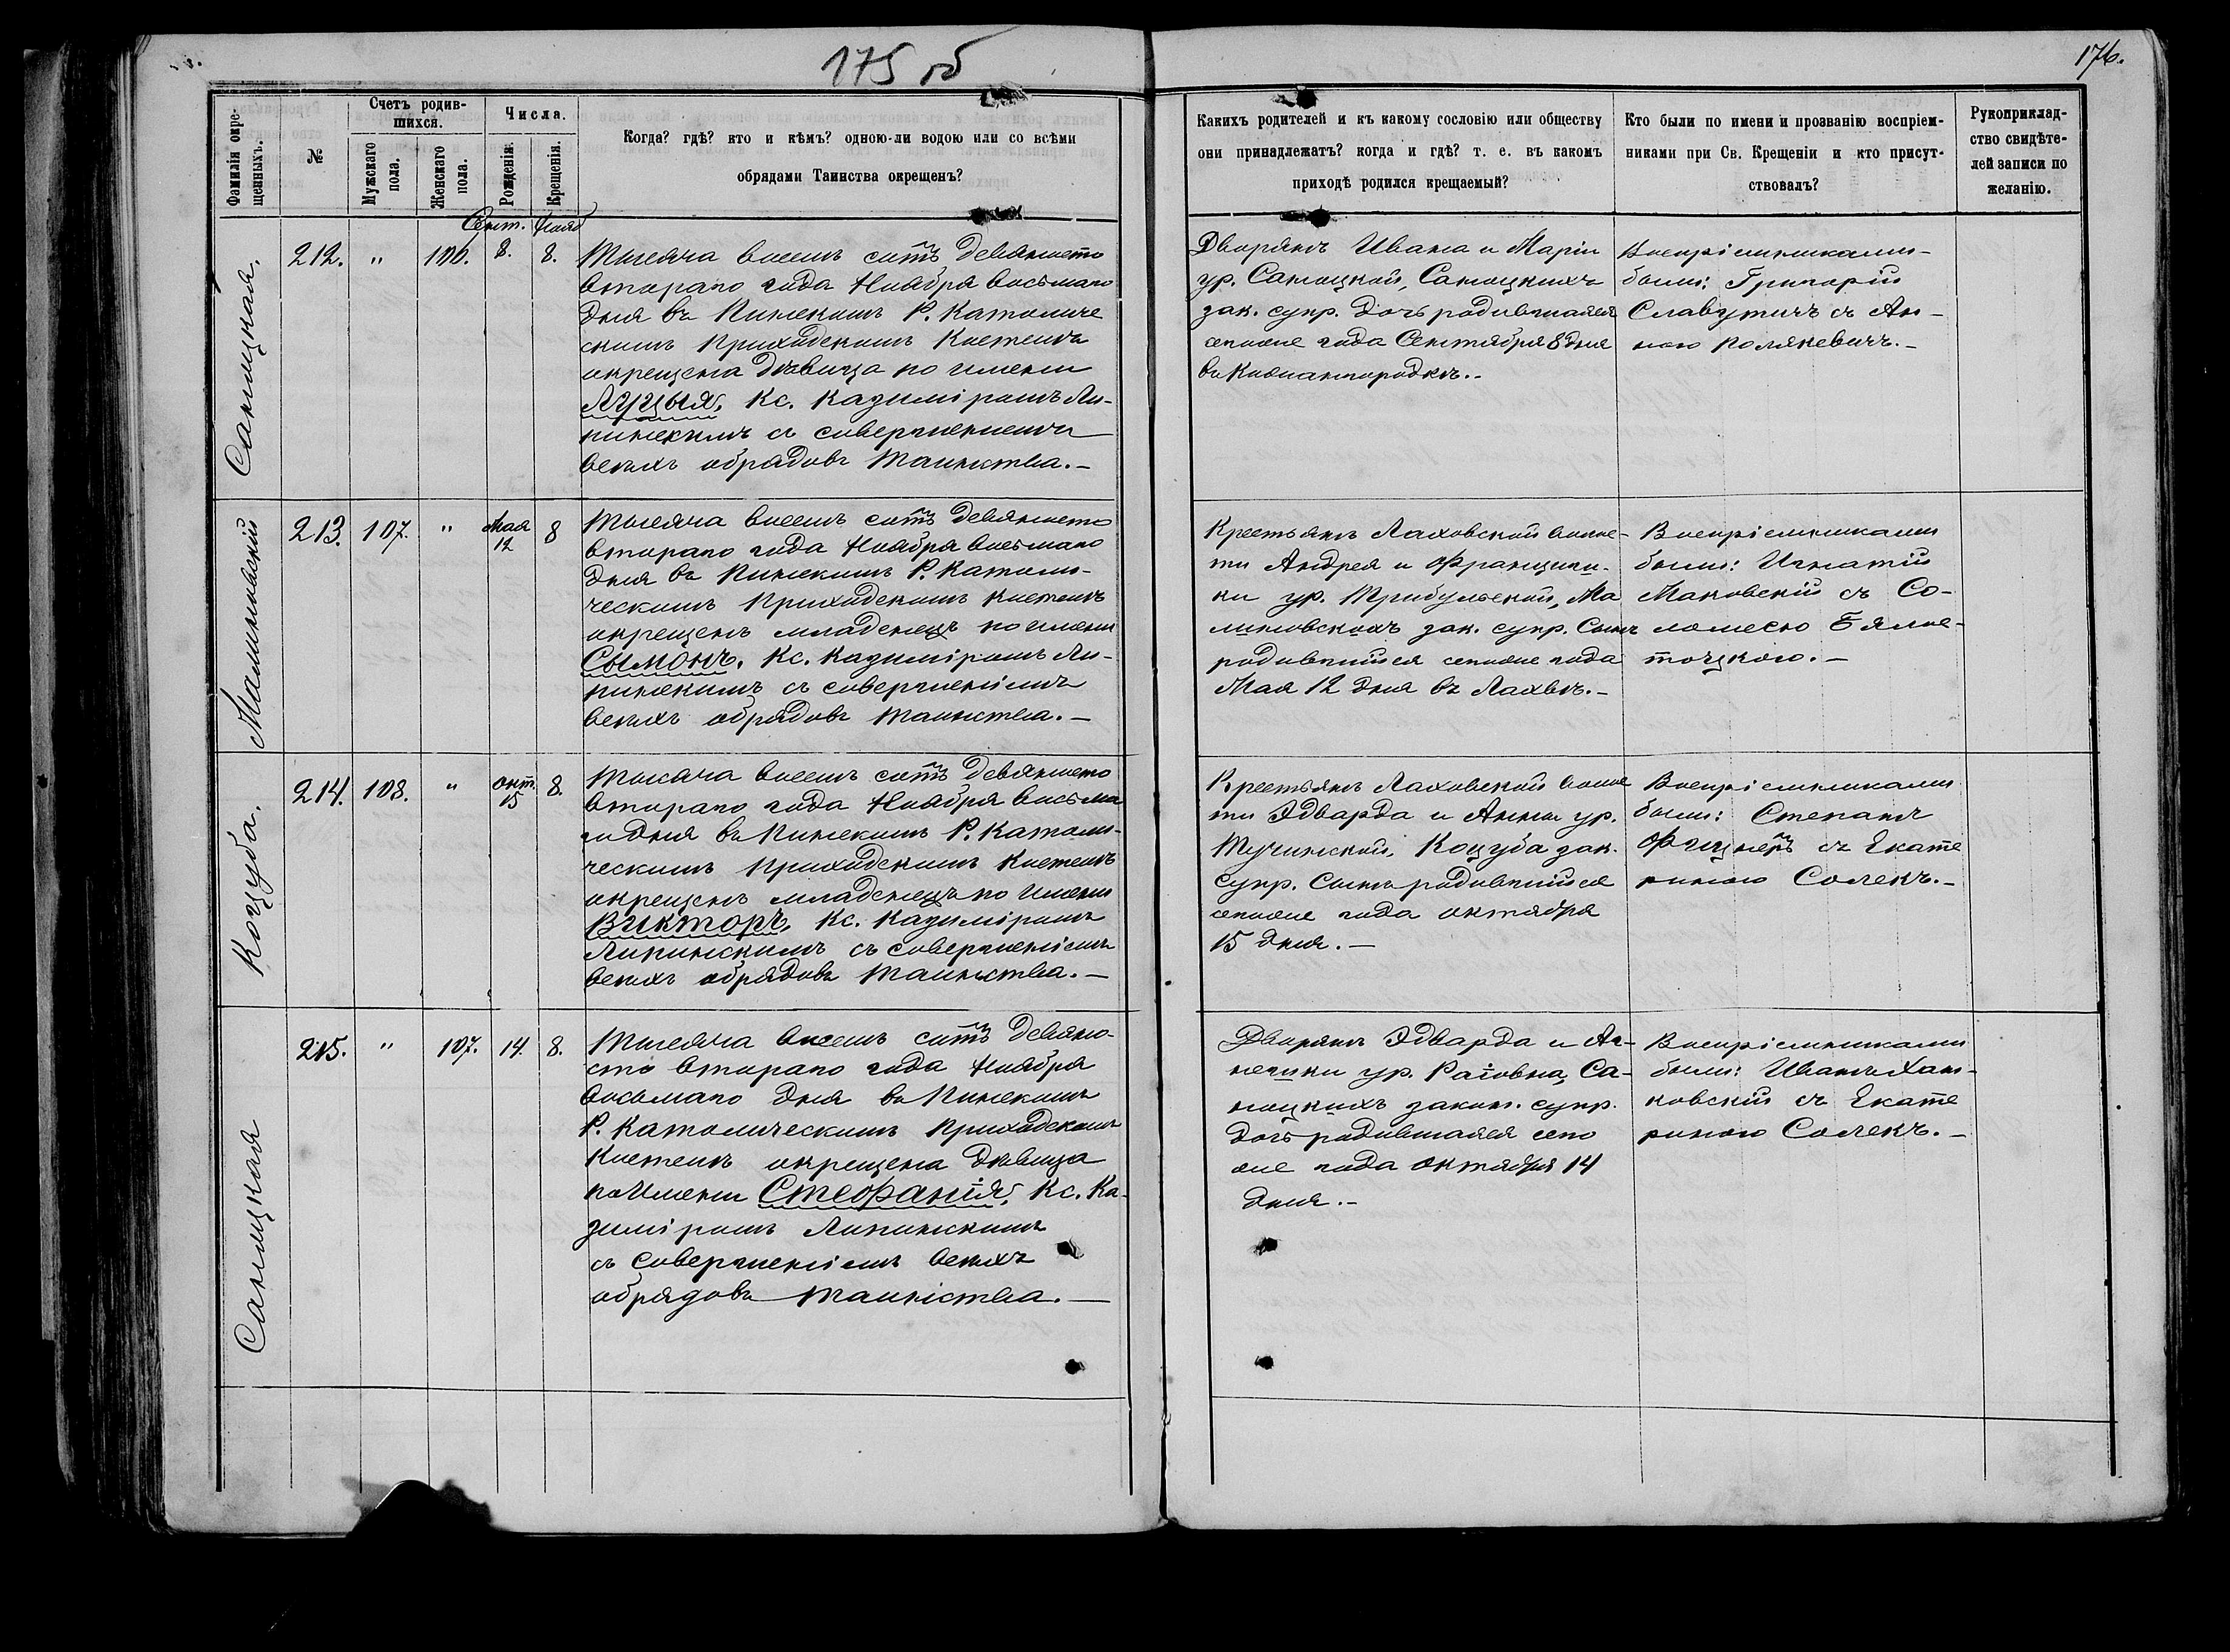 175 об
176.
Фамиліи окре-
щенныхъ.
№
Счетъ родив-
шихся.
Мужскаго
пола.
Женскаго
пола.
Числа.
Рожденія.
Крещенія.
Когда? гдѣ? кто и кѣмъ? одною-ли водою или со всѣми
обрядами Таинства окрещенъ?
Какихъ родителей и къ какому сословію или обществу
они принадлежатъ? когда и гдѣ? т. е. въ какомъ
приходѣ родился крещаемый?
Кто были по имени и прозванію воспріем-
никами при Св. Крещеніи и кто присут-
ствовалъ?
Рукоприклад-
ство свидѣте-
лей записи по
желанію.
Саноцкая.
212.
"
106.
Сент.
8.
Нояб
8.
Тысяча восемь сотъ девяносто
втораго года Ноября восьмаго
дня въ Пинскомъ Р. Католиче
скомъ Приходскомъ Костелѣ
окрещена дѣвица по имени
Луцыя, Кс. Казиміромъ Ли-
пинскимъ съ совершеніемъ
всѣхъ обрядовъ таинства.–
Дворянъ Ивана и Маріи
ур. Саноцкой, Саноцкихъ
зак. супр. дочь родившаяся
сегоже года Сентября 8 дня
въ Кожангородкѣ.–
Воспріемниками
были: Григорій
Славутичъ съ Ан-
ною Полякевичъ.–
Малиновскій
213.
107.
"
Мая
12
8
Тысяча восемь сотъ девяносто
втораго года Ноября восьмаго
дня въ Пинскомъ Р. Католи-
ческомъ Приходскомъ Костелѣ
окрещенъ младенецъ по имени
Сымонъ, Кс. Казиміромъ Ли-
пинскимъ съ совершеніемъ
всѣхъ обрядовъ таинства.–
Крестьянъ Лаховской волос-
ти Андрея и Францишк-
ки ур. Трибульской, Ма
линовскихъ зак. супр. Сынъ
родившійся сегоже года
Мая 12 дня въ Лахвѣ.–
Воспріемниками
были: Игнатій
Маковскій съ Со-
ломеею Бялос-
тоцкою.–
Коцуба.
214.
108.
"
окт.
15
8.
Тысяча восемь сотъ девяносто
втораго года Ноября восьма
го дня въ Пинскомъ Р. Католи-
ческомъ Приходскомъ Костелѣ
окрещенъ младенецъ по имени
Викторъ, Кс. Казиміромъ
Липинскимъ съ совершеніемъ
всѣхъ обрядовъ таинства.–
Крестьянъ Лаховской волос
ти Эдварда и Анны ур.
Тучинской, Коцуба зак.
супр. Сынъ родившійся
сегоже года октября
15 дня.–
Воспріемниками
были: Степанъ
Фицнеръ съ Екате
риною Солекъ.–
Саноцкая
215.
"
107.
14.
8.
Тысяча восемь сотъ девяно-
сто втораго года Ноября
восьмаго дня въ Пинскомъ
Р. Католическомъ Приходскомъ
Костелѣ окрещена дѣвица
по имени Стефанія, Кс. Ка-
зиміромъ Липинскимъ
съ совершеніемъ всѣхъ
обрядовъ таинства.–
Дворянъ Эдварда и Аг-
нешки ур. Саноцкихъ законн. супр.
дочь родившаяся сего
же года октября 14
дня.–
Воспріемниками
были: Иванъ
съ Екате
риною Солекъ.–